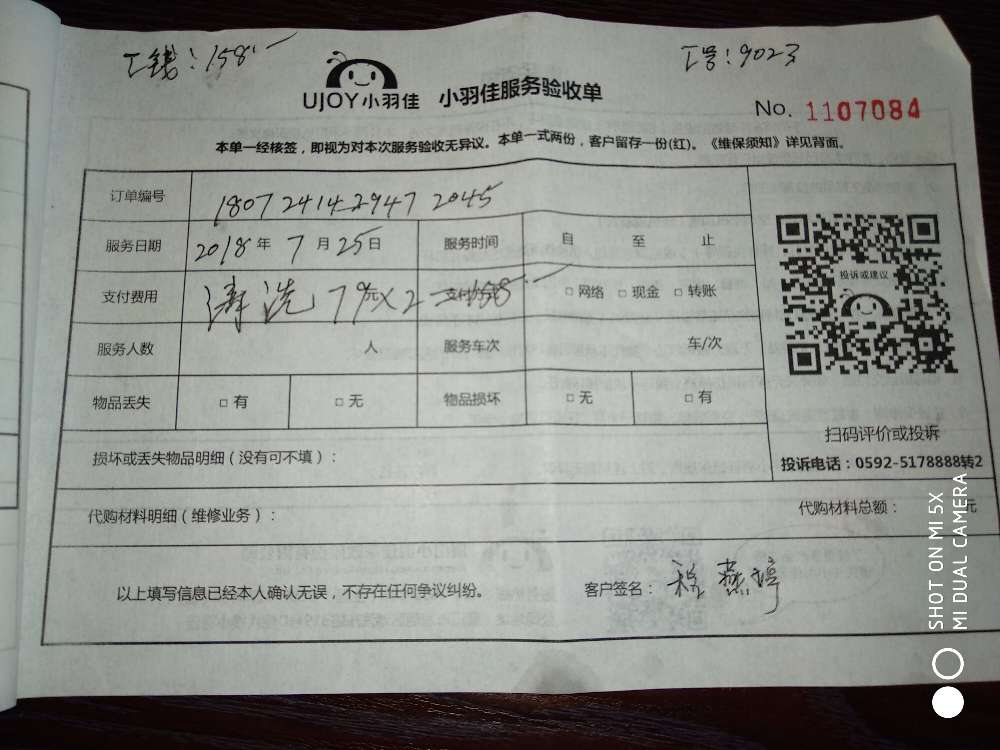 工钱：158.—
工号：9023
UJOY小羽佳 小羽佳服务验收单
No. 1107084
本单一经核签，即视为对本次服务验收无异议。本单一式两份，客户留存一份(红)。《维保须知》详见背面。
订单编号 1807 2414 2947 2045
服务日期 2018年 7月25日 服务时间 自 至 止
支付费用 清洗 79元×2=158.— 支付方式 □ 网络 □ 现金 □ 转账
服务人数 人 服务车次 车/次
物品丢失 □ 有 □ 无 物品损坏 □ 无 □ 有
投诉或建议
扫码评价或投诉
投诉电话：0592-5178888转2
损坏或丢失物品明细（没有可不填）：
代购材料明细（维修业务）： 代购材料总额： 元
以上填写信息已经本人确认无误，不存在任何争议纠纷。 客户签名：程燕婷
SHOT ON MI 5X
MI DUAL CAMERA